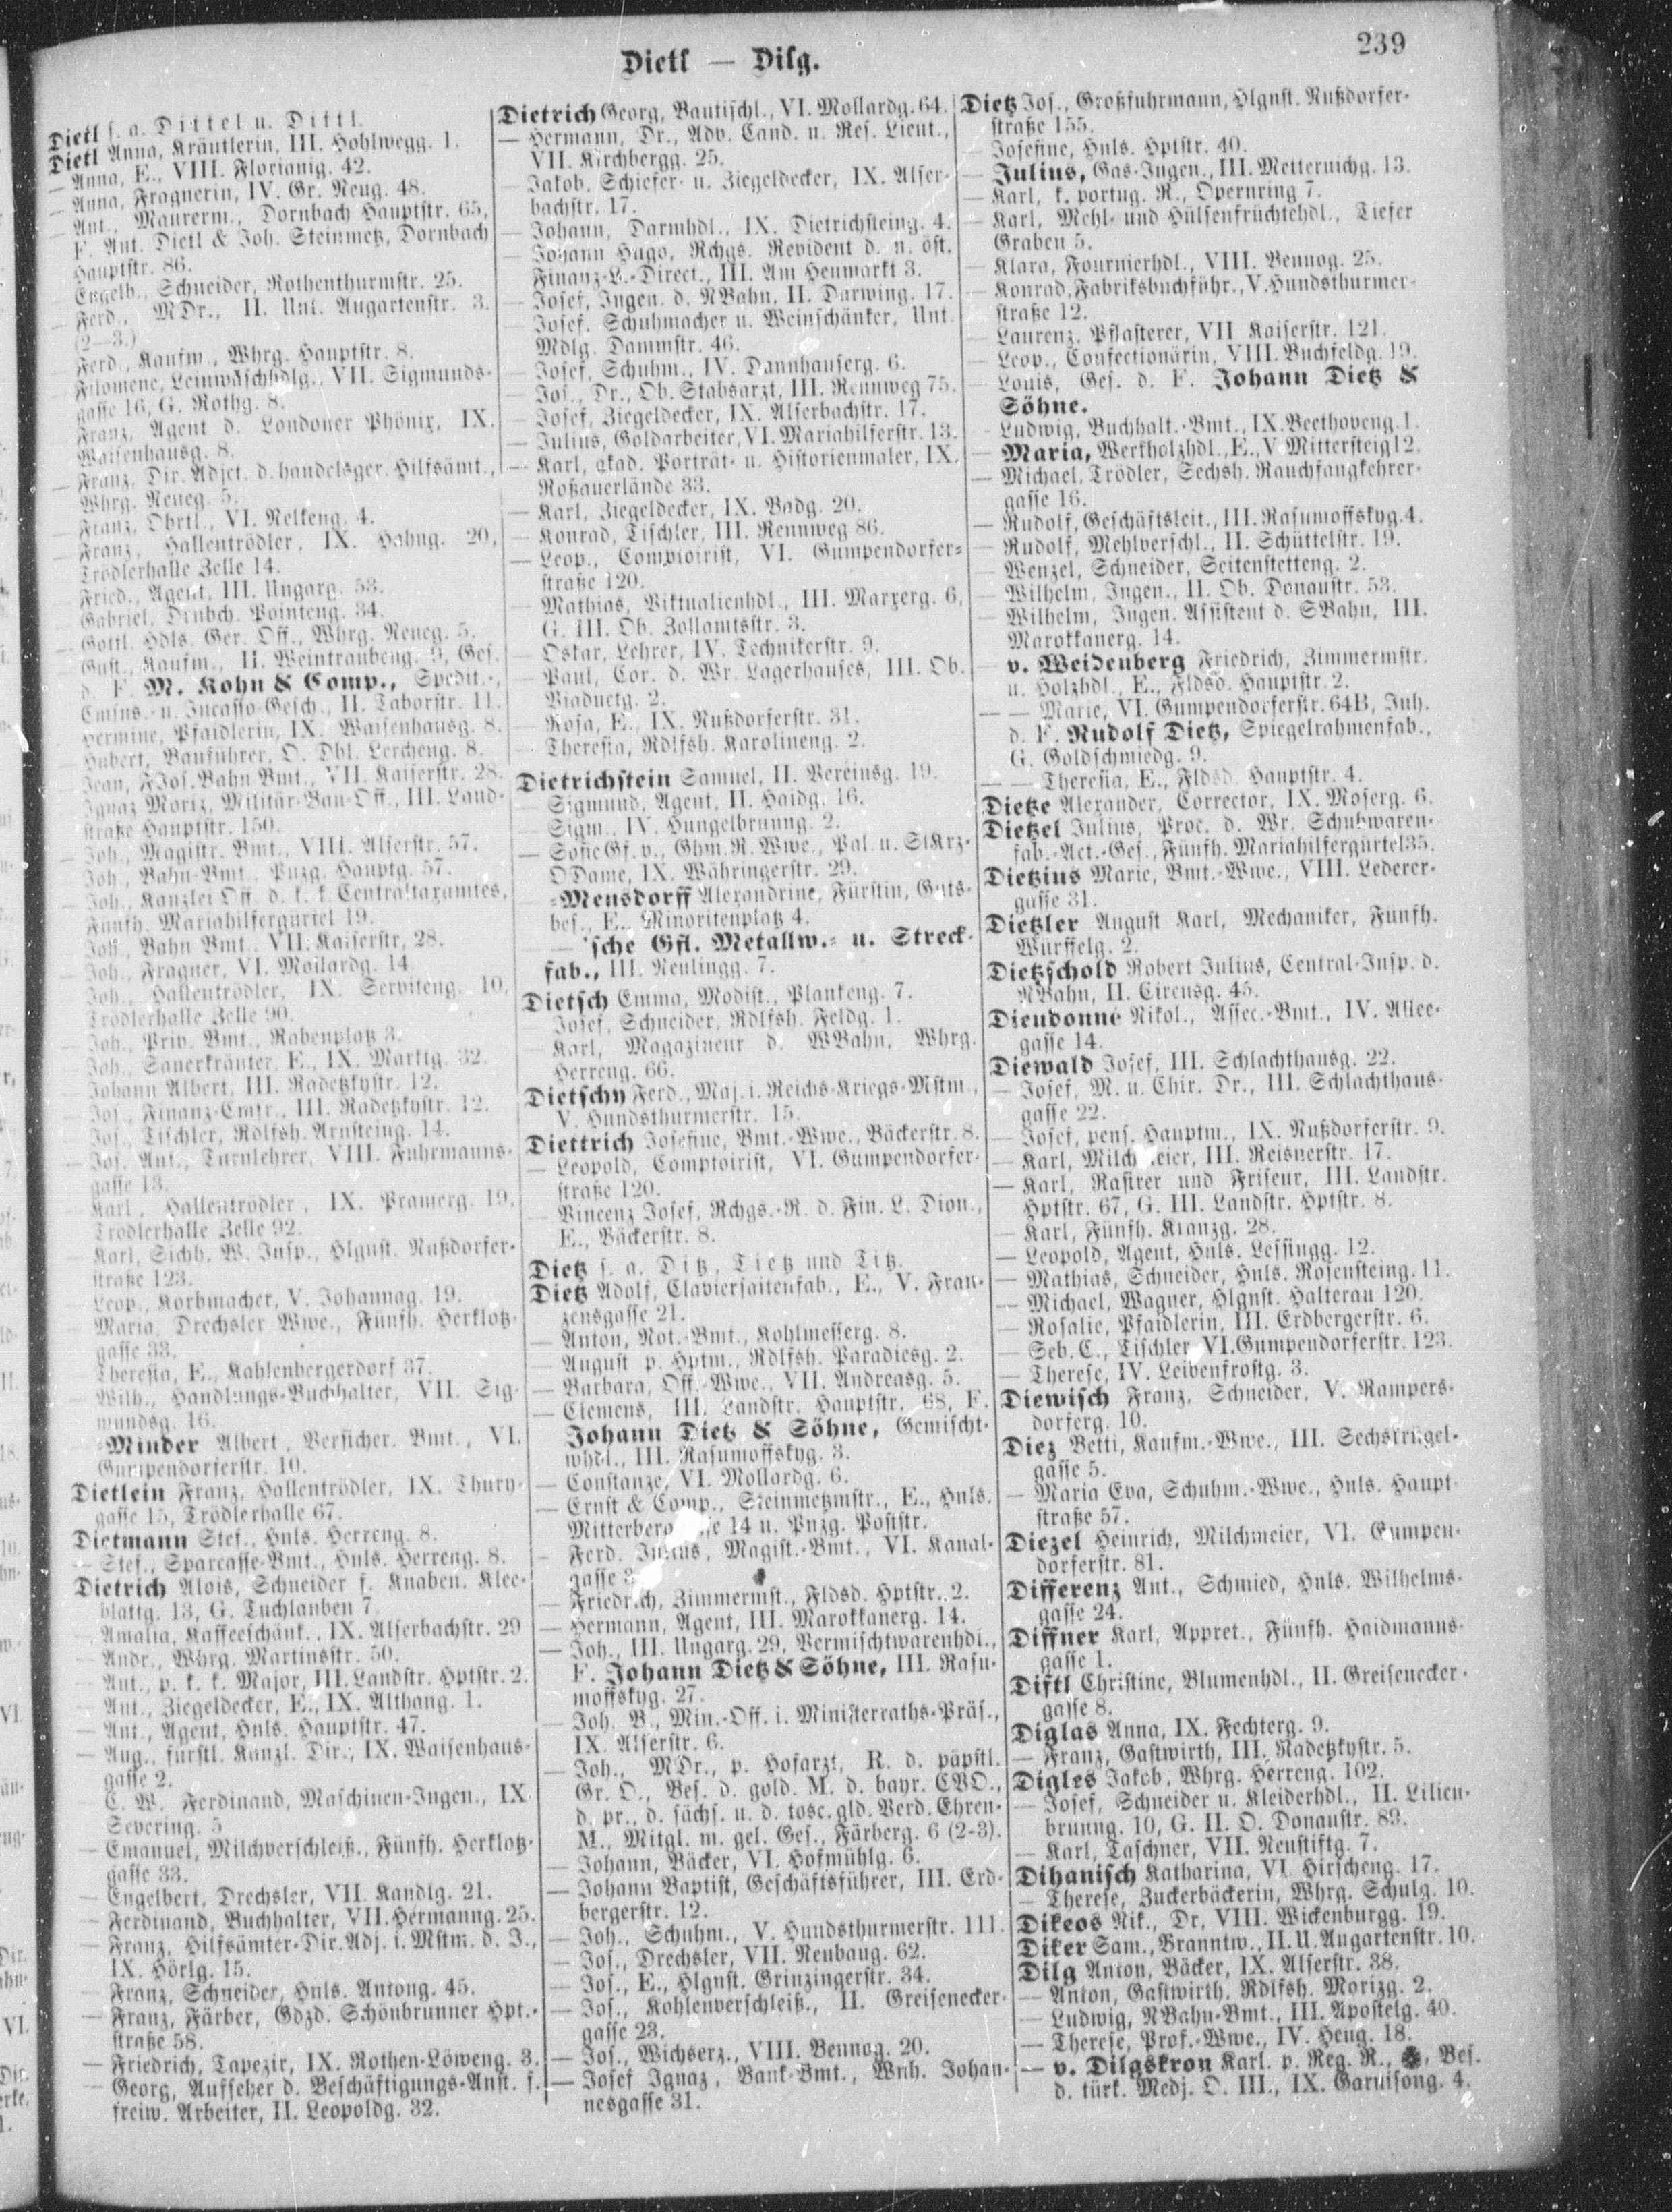 239
Dietl — Dilg.
Dietl s. a. Dittel u. Dittl.
Dietl Anna, Kräutlerin, III. Hohlwegg. 1.
— Anna, E., VIII. Florianig. 42.
— Anna, Fragnerin, IV. Gr. Neug. 48.
— Ant., Maurerm., Dornbach Hauptstr. 65,
F. Ant. Dietl & Joh. Steinmetz, Dornbach
Hauptstr. 86.
— Engelb., Schneider, Rothenthurmstr. 25.
— Ferd., MDr., II. Unt. Augartenstr. 3.
(2—3.)
— Ferd., Kaufm., Whrg. Hauptstr. 8.
Filomene, Leinwäschhdlg., VII. Sigmunds-
gasse 16, G. Rothg. 8.
Franz, Agent d. Londoner Phönix, IX.
Waisenhausg. 8.
— Franz, Dir. Adjct. d. handelsger. Hilfsämt.,
Whrg. Neueg. 5.
Franz, Obrtl., VI. Nelkeng. 4.
— Franz, Hallentrödler, IX. Hahng. 20,
Trödlerhalle Zelle 14.
— Fried., Agent, III. Ungarg. 53.
Gabriel, Drnbch. Pointeng. 34.
— Gottl. Hdls. Ger. Off., Whrg. Neueg. 5.
Gust., Kaufm., II. Weintraubeng. 9, Ges.
d. F. M. Kohn & Comp., Spedit.-,
Cmins.- u. Incasso-Gesch., II. Taborstr. 11.
Hermine, Pfaidlerin, IX. Waisenhausg. 8.
Hubert, Bauführer, O. Dbl. Lercheng. 8.
Jean, FJos. Bahn Bmt., VII. Kaiserstr. 28.
Ignaz Moriz, Militär-Bau-Off., III. Land-
straße Hauptstr. 150.
— Joh., Magistr. Bmt., VIII. Alserstr. 57.
Joh., Bahn-Bmt., Pnzg. Hauptg. 57.
— Joh., Kanzlei Off. d. k. k. Centraltaxamtes,
Fünfh. Mariahilfergürtel 19.
Joh., Bahn Bmt., VII. Kaiserstr. 28.
— Joh., Fragner, VI. Mollardg. 14.
Joh., Hallentrödler, IX. Serviteng. 10,
Trödlerhalle Zelle 90.
— Joh., Priv. Bmt., Rabenplatz 3.
Joh., Sauerkräuter, E., IX. Marktg. 32.
Johann Albert, III. Radetzkystr. 12.
— Jos., Finanz-Cmsr., III. Radetzkystr. 12.
Jos., Tischler, Rdlfsh. Arnsteing. 14.
— Jos. Ant., Turnlehrer, VIII. Fuhrmanns-
gasse 13.
Karl, Hallentrödler, IX. Pramerg. 19,
Trödlerhalle Zelle 92.
— Karl, Sichh. W. Insp., Hlgnst. Nußdorfer-
straße 123.
— Leop., Korbmacher, V. Johannag. 19.
— Maria, Drechsler Wwe., Fünfh. Herklotz-
gasse 33.
Theresia, E., Kahlenbergerdorf 37.
— Wilh., Handlungs-Buchhalter, VII. Sig-
mundsg. 16.
-Minder Albert, Versicher. Bmt., VI.
Gumpendorferstr. 10.
Dietlein Franz, Hallentrödler, IX. Thury-
gasse 15, Trödlerhalle 67.
Dietmann Stef., Hnls. Herreng. 8.
— Stef., Sparcasse-Bmt., Hnls. Herreng. 8.
Dietrich Alois, Schneider f. Knaben. Klee-
blattg. 13, G. Tuchlauben 7.
— Amalia, Kaffeeschänk., IX. Alserbachstr. 29
— Andr., Whrg. Martinsstr. 50.
— Ant., p. k. k. Major, III. Landstr. Hptstr. 2.
— Ant., Ziegeldecker, E., IX. Althang. 1.
— Ant., Agent, Hnls. Hauptstr. 47.
— Aug., fürstl. Kanzl. Dir., IX. Waisenhaus-
gasse 2.
— C. W. Ferdinand, Maschinen-Ingen., IX.
Severing. 5
— Emanuel, Milchverschleiß., Fünfh. Herklotz-
gasse 33.
— Engelbert, Drechsler, VII. Kandlg. 21.
— Ferdinand, Buchhalter, VII. Hermanng. 25.
— Franz, Hilfsämter-Dir. Adj. i. Mstm. d. J.,
IX. Hörlg. 15.
— Franz, Schneider, Hnls. Antong. 45.
— Franz, Färber, Gdzd. Schönbrunner Hpt.-
straße 58.
— Friedrich, Tapezir, IX. Rothen-Löweng. 3.
— Georg, Aufseher d. Beschäftigungs-Anst. f.
freiw. Arbeiter, II. Leopoldg. 32.
Dietrich Georg, Bautischl., VI. Mollardg. 64.
— Hermann, Dr., Adv. Cand. u. Res. Lieut.,
VII. Kirchbergg. 25.
— Jakob, Schiefer- u. Ziegeldecker, IX. Alser-
bachstr. 17.
— Johann, Darmhdl., IX. Dietrichsteing. 4.
— Johann Hugo, Rchgs. Revident d. n. öst.
Finanz-L.-Direct., III. Am Heumarkt 3.
— Josef, Ingen. d. NBahn, II. Darwing. 17.
— Josef, Schuhmacher u. Weinschänker, Unt.
Mdlg. Dammstr. 46.
— Josef, Schuhm., IV. Dannhauserg. 6.
— Jos., Dr., Ob. Stabsarzt, III. Rennweg 75.
— Josef, Ziegeldecker, IX. Alserbachstr. 17.
— Julius, Goldarbeiter, VI. Mariahilferstr. 13.
— Karl, akad. Porträt- u. Historienmaler, IX.
Roßauerlände 33.
— Karl, Ziegeldecker, IX. Badg. 20.
— Konrad, Tischler, III. Rennweg 86.
— Leop., Comptoirist, VI. Gumpendorfer-
straße 120.
— Mathias, Viktualienhdl., III. Marxerg. 6,
G. III. Ob. Zollamtsstr. 3.
— Oskar, Lehrer, IV. Technikerstr. 9.
— Paul, Cor. d. Wr. Lagerhauses, III. Ob.
Viaductg. 2.
— Rosa, E., IX. Nußdorferstr. 31.
— Theresia, Rdlfsh. Karolineng. 2.
Dietrichstein Samuel, II. Vereinsg. 19.
— Sigmund, Agent, II. Haidg. 16.
— Sigm., IV. Hungelbrunng. 2.
— Sofie Gf. v., Ghm. R. Wwe., Pal. u. StKrz-
ODame, IX. Währingerstr. 29.
-Mensdorff Alexandrine, Fürstin, Guts-
bes., E., Minoritenplatz 4.
— 'sche Gfl. Metallw.- u. Streck-
fab., III. Neulingg. 7.
Dietsch Emma, Modist., Plankeng. 7.
Josef, Schneider, Rdlfsh. Feldg. 1.
— Karl, Magazineur d. WBahn, Whrg.
Herreng. 66.
Dietschy Ferd., Maj. i. Reichs-Kriegs-Mstm.,
V. Hundsthurmerstr. 15.
Diettrich Josefine, Bmt.-Wwe., Bäckerstr. 8.
— Leopold, Comptoirist, VI. Gumpendorfer-
straße 120.
— Vincenz Josef, Rchgs.-R. d. Fin. L. Dion.,
E., Bäckerstr. 8.
Dietz s. a. Ditz, Tietz und Titz.
Dietz Adolf, Claviersaitenfab., E., V. Fran-
zensgasse 21.
— Anton, Not.-Bmt., Kohlmesserg. 8.
— August p. Hptm., Rdlfsh. Paradiesg. 2.
— Barbara, Off.-Wwe., VII. Andreasg. 5.
— Clemens, III. Landstr. Hauptstr. 68, F.
Johann Dietz & Söhne, Gemischt-
whdl., III. Rasumoffskyg. 3.
— Constanze, VI. Mollardg. 6.
— Ernst & Comp., Steinmetzmstr., E., Hnls.
Mitterberg 14 u. Pnzg. Poststr.
— Ferd. Julius, Magist.-Bmt., VI. Kanal-
gasse 3
— Friedrich, Zimmermst., Fldsd. Hptstr. 2.
— Hermann, Agent, III. Marokkanerg. 14.
— Joh., III. Ungarg. 29, Vermischtwarenhdl.,
F. Johann Dietz & Söhne, III. Rasu-
moffskyg. 27.
— Joh. B., Min.-Off. i. Ministerraths-Präs.,
IX. Alserstr. 6.
— Joh., MDr., p. Hofarzt, R. d. päpstl.
Gr. O., Bes. d. gold. M. d. bayr. CVO.,
d. pr., d. sächs. u. d. tosc. gld. Verd. Ehren-
M., Mitgl. m. gel. Ges., Färberg. 6 (2-3).
— Johann, Bäcker, VI. Hofmühlg. 6.
— Johann Baptist, Geschäftsführer, III. Erd-
bergerstr. 12.
— Joh., Schuhm., V. Hundsthurmerstr. 111.
— Jos., Drechsler, VII. Neubaug. 62.
— Jos., E., Hlgnst. Grinzingerstr. 34.
— Jos., Kohlenverschleiß., II. Greisenecker-
gasse 23.
— Jos., Wichserz., VIII. Bennog. 20.
— Josef Ignaz, Bank-Bmt., Wnh. Johan-
nesgasse 31.
Dietz Jos., Großfuhrmann, Hlgnst. Nußdorfer-
straße 155.
— Josefine, Hnls. Hptstr. 40.
— Julius, Gas-Ingen., III. Metternichg. 13.
— Karl, k. portug. R., Opernring 7.
— Karl, Mehl- und Hülsenfrüchtehdl., Tiefer
Graben 5.
— Klara, Fournierhdl., VIII. Bennog. 25.
— Konrad, Fabriksbuchführ., V. Hundsthurmer-
straße 12.
— Laurenz, Pflasterer, VII Kaiserstr. 121.
— Leop., Confectionärin, VIII. Buchfeldg. 19.
— Louis, Ges. d. F. Johann Dietz &
Söhne.
Ludwig, Buchhalt.-Bmt., IX. Beethoveng. 1.
— Maria, Werkholzhdl., E., V. Mittersteig 12.
— Michael, Trödler, Sechsh. Rauchfangkehrer-
gasse 16.
— Rudolf, Geschäftsleit., III. Rasumoffskyg. 4.
— Rudolf, Mehlverschl., II. Schüttelstr. 19.
— Wenzel, Schneider, Seitenstetteng. 2.
— Wilhelm, Ingen., II. Ob. Donaustr. 53.
— Wilhelm, Ingen. Assistent d. SBahn, III.
Marokkanerg. 14.
— v. Weidenberg Friedrich, Zimmermstr.
u. Holzhdl., E., Fldsd. Hauptstr. 2.
— — Marie, VI. Gumpendorferstr. 64B, Inh.
d. F. Rudolf Dietz, Spiegelrahmenfab.,
G. Goldschmiedg. 9.
— — Theresia, E., Fldsd. Hauptstr. 4.
Dietze Alexander, Corrector, IX. Moserg. 6.
Dietzel Julius, Proc. d. Wr. Schuhwaren-
fab.-Act.-Ges., Fünfh. Mariahilfergürtel 35.
Dietzius Marie, Bmt.-Wwe., VIII. Lederer-
gasse 31.
Dietzler August Karl, Mechaniker, Fünfh.
Würffelg. 2.
Dietzschold Robert Julius, Central-Insp. d.
NBahn, II. Circusg. 45.
Dieudonné Nikol., Assec.-Bmt., IV. Allee-
gasse 14.
Diewald Josef, III. Schlachthausg. 22.
— Josef, M. u. Chir. Dr., III. Schlachthaus-
gasse 22.
— Josef, pens. Hauptm., IX. Nußdorferstr. 9.
— Karl, Milchmeier, III. Reisnerstr. 17.
— Karl, Rasirer und Friseur, III. Landstr.
Hptstr. 67, G. III. Landstr. Hptstr. 8.
— Karl, Fünfh. Kranzg. 28.
— Leopold, Agent, Hnls. Lessingg. 12.
— Mathias, Schneider, Hnls. Rosensteing. 11.
— Michael, Wagner, Hlgnst. Halterau 120.
— Rosalie, Pfaidlerin, III. Erdbergerstr. 6.
— Seb. C., Tischler, VI. Gumpendorferstr. 123.
— Therese, IV. Leibenfrostg. 3.
Diewisch Franz, Schneider, V. Rampers-
dorferg. 10.
Diez Betti, Kaufm.-Wwe., III. Sechskrügel-
gasse 5.
— Maria Eva, Schuhm.-Wwe., Hnls. Haupt-
straße 57.
Diezel Heinrich, Milchmeier, VI. Gumpen-
dorferstr. 81.
Differenz Ant., Schmied, Hnls. Wilhelms-
gasse 24.
Diffner Karl, Appret., Fünfh. Haidmanns-
gasse 1.
Diftl Christine, Blumenhdl., II. Greisenecker-
gasse 8.
Diglas Anna, IX. Fechterg. 9.
— Franz, Gastwirth, III. Radetzkystr. 5.
Digles Jakob, Whrg. Herreng. 102.
— Josef, Schneider u. Kleiderhdl., II. Lilien-
brunng. 10, G. II. O. Donaustr. 83.
— Karl, Taschner, VII. Neustiftg. 7.
Dihanisch Katharina, VI. Hirscheng. 17.
— Therese, Zuckerbäckerin, Whrg. Schulg. 10.
Dikeos Nik., Dr, VIII. Wickenburgg. 19.
Diker Sam., Branntw., II. U. Augartenstr. 10.
Dilg Anton, Bäcker, IX. Alserstr. 38.
— Anton, Gastwirth, Rdlfsh. Morizg. 2.
— Ludwig, NBahn-Bmt., III. Apostelg. 40.
— Therese, Prof.-Wwe., IV. Heug. 18.
— v. Dilgskron Karl, p. Reg. R., Bes.
d. türk. Medj. O. III., IX. Garnisong. 4.